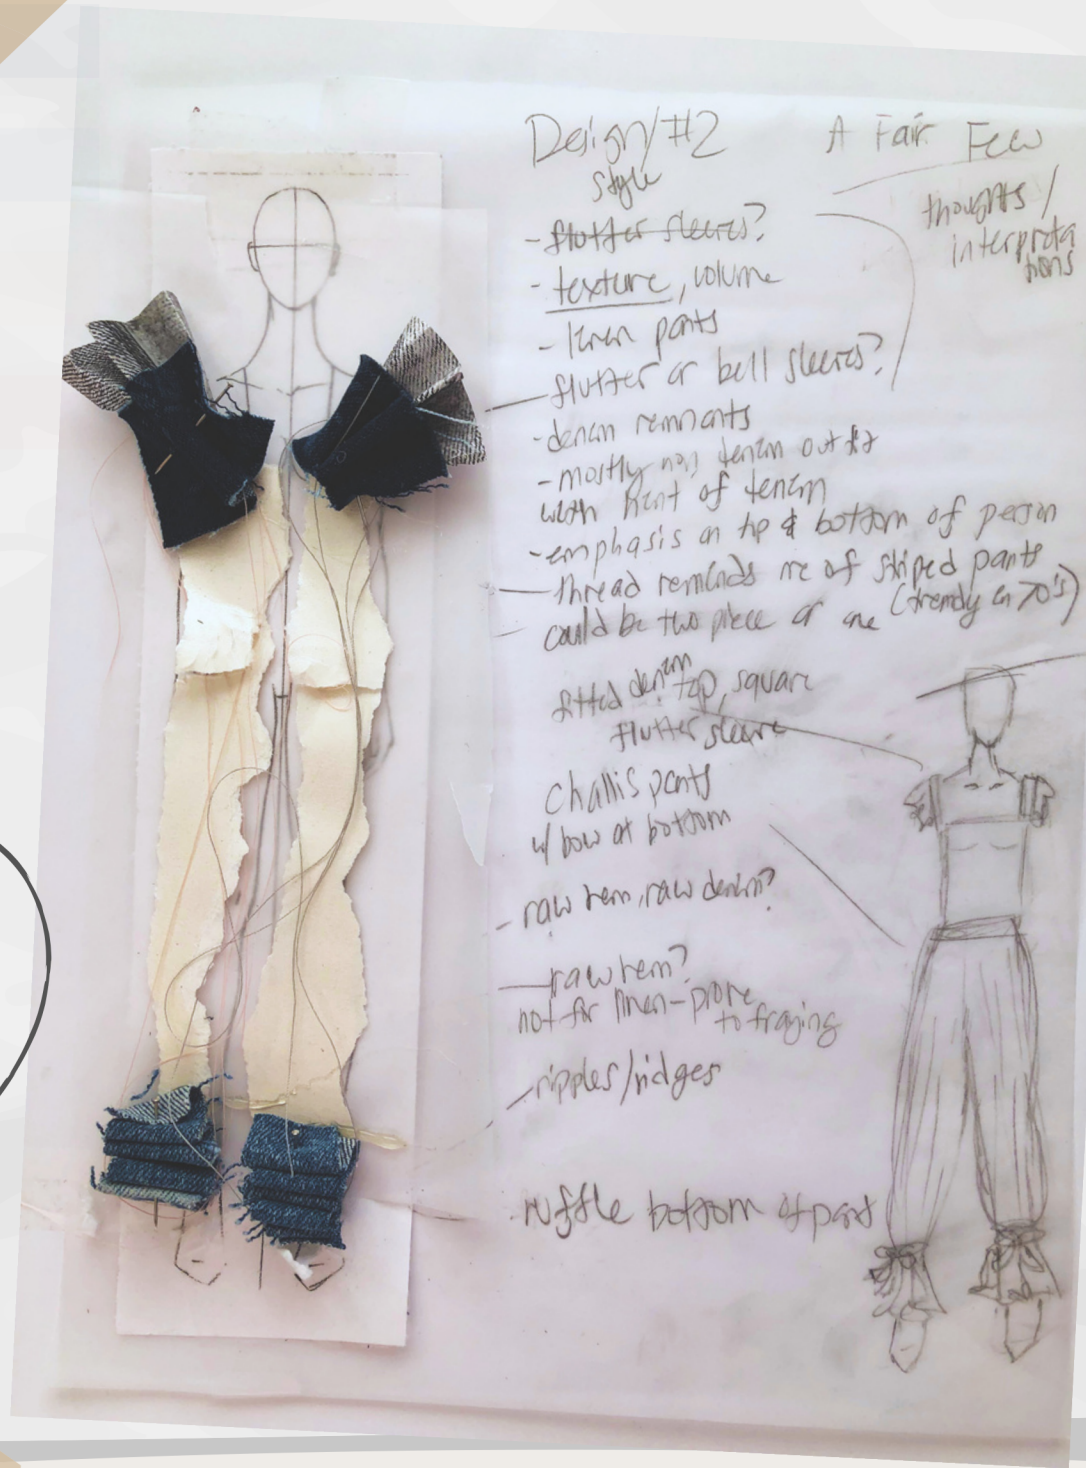 Design/#2
style
A Fair Few
thoughts/
interpreta
tions
- flutter sleeves?
- texture, volume
- linen pants
- flutter or bell sleeves?
- denim remnants
- mostly non denim outfit
with hint of denim
- emphasis on top & bottom of person
- thread reminds me of striped pants
(trendy in 70's)
could be two piece or one
fitted denim top, square
flutter sleeve
challis pants
w/ bow at bottom
- raw hem, raw denim?
- raw hem?
not for linen - prone
to fraying
- ripples/ridges
ruffle bottom of pant